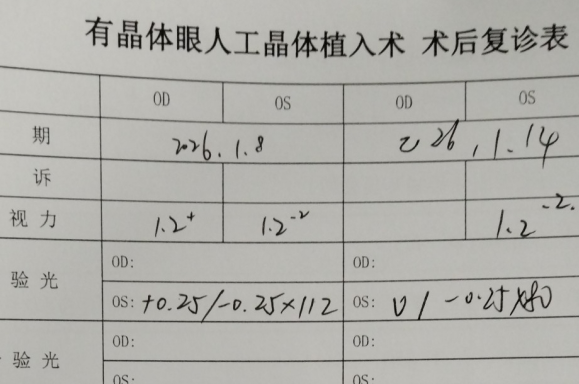 有晶体眼人工晶体植入术 术后复诊表
OD OS OD OS
期 2026.1.8 2026.1.14
诉
视力 1.2⁺ 1.2⁻² 1.2⁻².
验光 OD: OD:
OS: +0.25/-0.25×112 OS: 0/-0.25×80
验光 OD: OD:
OS: OS: